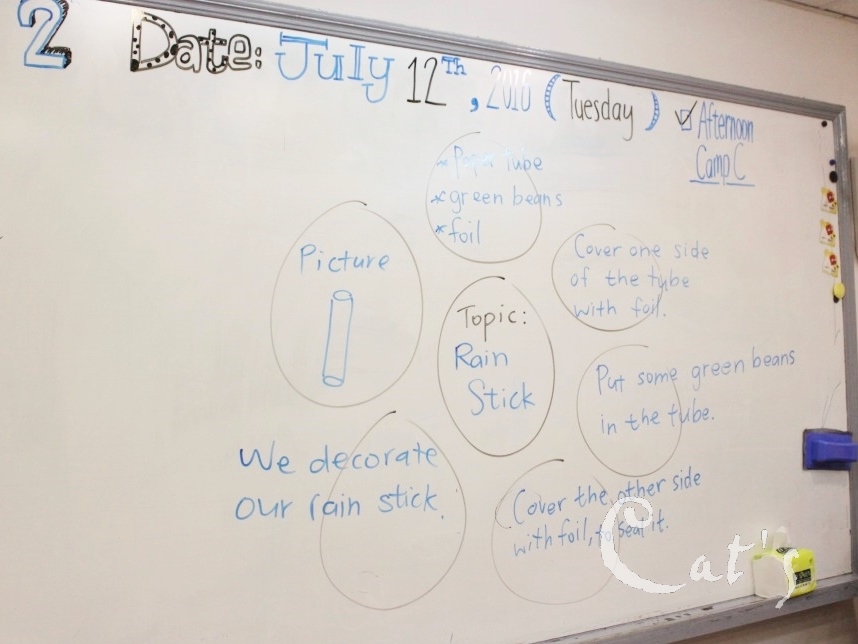 2 Date: July 12Th, 2016 (Tuesday)
Afternoon
Camp C
* Paper tube
* green beans
* foil
Picture
Cover one side
of the tube
with foil.
Topic:
Rain
Stick
Put some green beans
in the tube.
We decorate
our rain stick.
Cover the other side
with foil, to seal it.
Cat's